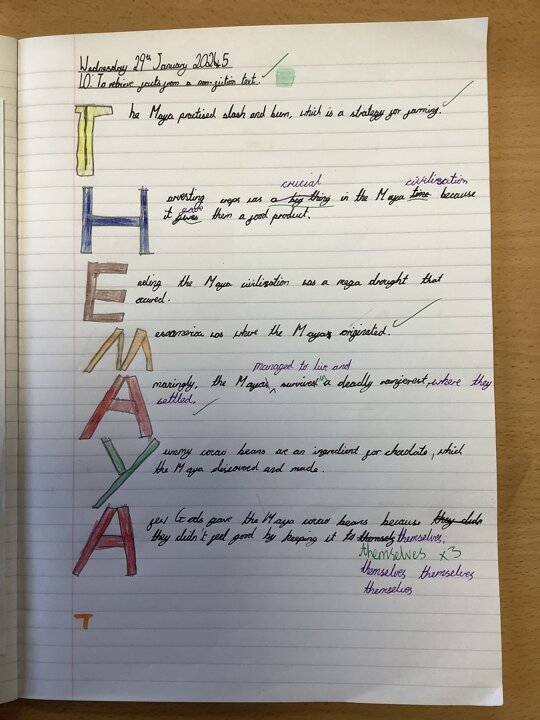 Wednesday 29th January 20245
LO: To retrieve facts from a non-fiction text.
The Maya practised slash and burn, which is a strategy for farming.
crucial civilization
Harvesting crops was a big thing in the Maya time because
gave
it gives them a good product.
Ending the Maya civilization was a mega drought that
occured.
Mesoamerica was where the Mayas originated.
managed to live and
Amazingly, the Mayas survives in a deadly rainforest, where they
settled.
Yummy cocoa beans are an ingredient for chocolate, which
the Maya discoverd and made.
A few Gods gave the Maya cocoa beans because they didn
they didn't feel good by keeping it to themselves.
themselves x3
themselves themselves
themselves
T